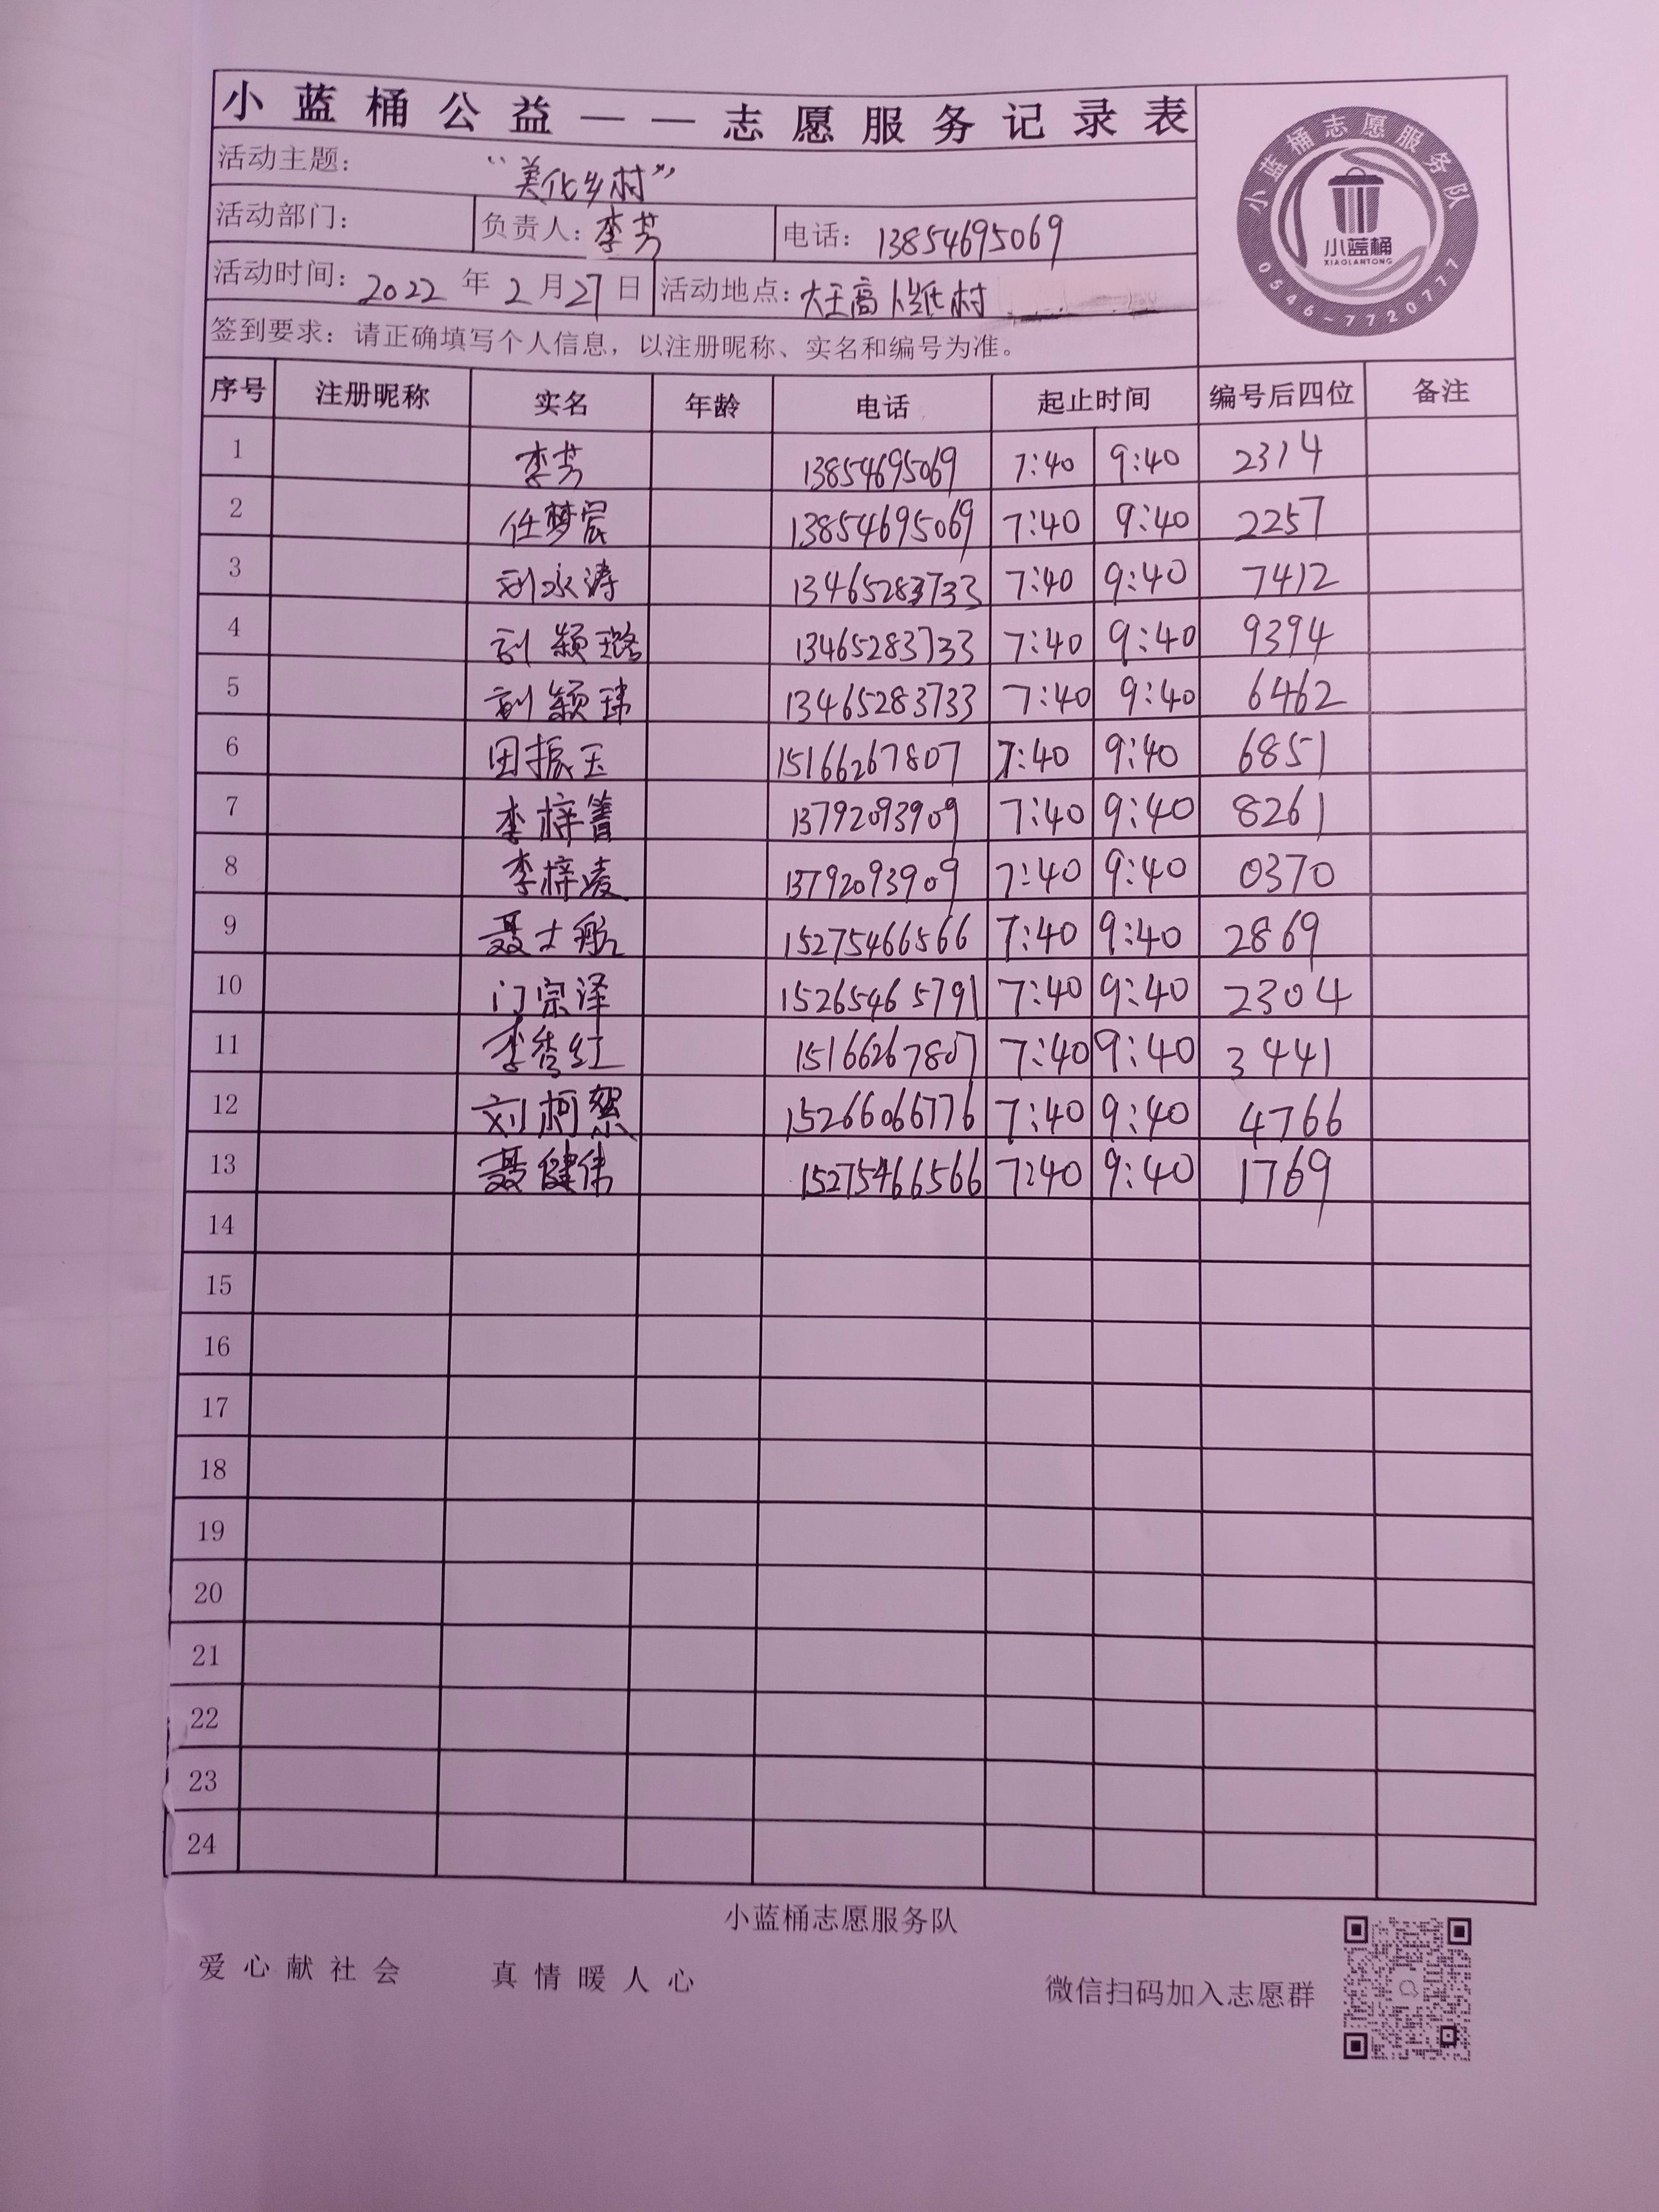 小蓝桶公益——志愿服务记录表
小蓝桶志愿服务队
小蓝桶
XIAOLANTONG
0546-7720777
活动主题： “美化乡村”
活动部门： 负责人：李芳 电话：13854695069
活动时间：2022年2月27日 活动地点：大王高 村
签到要求：请正确填写个人信息，以注册昵称、实名和编号为准。
序号 注册昵称 实名 年龄 电话 起止时间 编号后四位 备注
1 李芳 13854695069 7:40 9:40 2314
2 任梦宸 13854695069 7:40 9:40 2257
3 刘永涛 13465283733 7:40 9:40 7412
4 刘颖璐 13465283733 7:40 9:40 9394
5 刘颖玮 13465283733 7:40 9:40 6462
6 田振玉 15166267807 7:40 9:40 6851
7 李梓菁 13792093909 7:40 9:40 8261
8 李梓凌 13792093909 7:40 9:40 0370
9 聂士航 15275466566 7:40 9:40 2869
10 门宗泽 15265465791 7:40 9:40 2304
11 李秀红 15166267807 7:40 9:40 3441
12 刘柯絮 15266066776 7:40 9:40 4766
13 聂健伟 15275466566 7:40 9:40 1769
14
15
16
17
18
19
20
21
22
23
24
小蓝桶志愿服务队
爱心献社会 真情暖人心 微信扫码加入志愿群